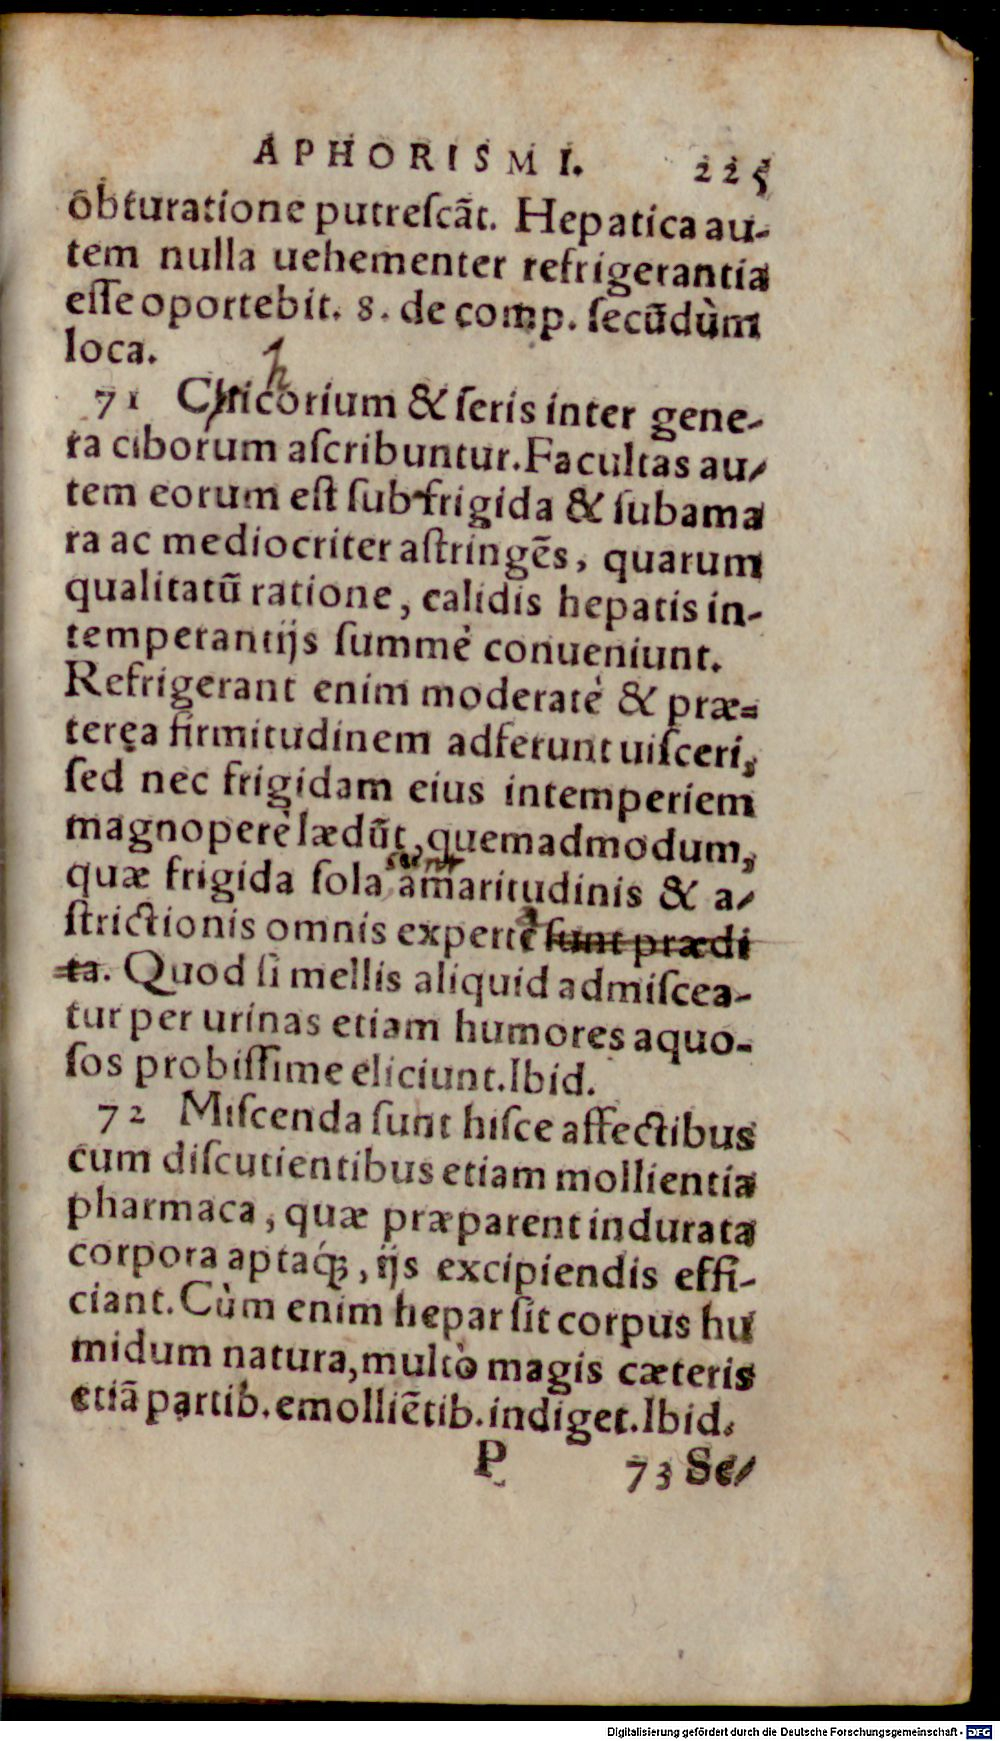 APHORISMI. 225
obturatione putreſcãt. Hepatica au-
tem nulla uehementer refrigerantia
eſſe oportebit. 8. de comp. ſecũdùm
loca.
h
71 Cricorium & ſeris inter gene-
ra ciborum aſcribuntur. Facultas au-
tem eorum eſt ſub frigida & ſubama
ra ac mediocriter aſtringẽs, quarum
qualitatũ ratione, calidis hepatis in-
temperantijs ſummè conueniunt.
Refrigerant enim moderatè & præ-
terea firmitudinem adferunt uiſceri,
ſed nec frigidam eius intemperiem
magnoperè lædũt, quemadmodum,
quæ frigida ſola amaritudinis & a-
ſtrictionis omnis experte ſunt prædi
ta. Quod ſi mellis aliquid admiſcea-
tur per urinas etiam humores aquo-
ſos probiſſime eliciunt. Ibid.
72 Miſcenda ſunt hiſce affectibus
cum diſcutientibus etiam mollientia
pharmaca, quæ præparent indurata
corpora aptaq́ꝫ, ijs excipiendis effi-
ciant. Cùm enim hepar ſit corpus hu
midum natura, multò magis cæteris
etiã partib. emolliẽtib. indiget. Ibid.
P 73 Se-
Digitalisierung gefördert durch die Deutsche Forschungsgemeinschaft - DFG